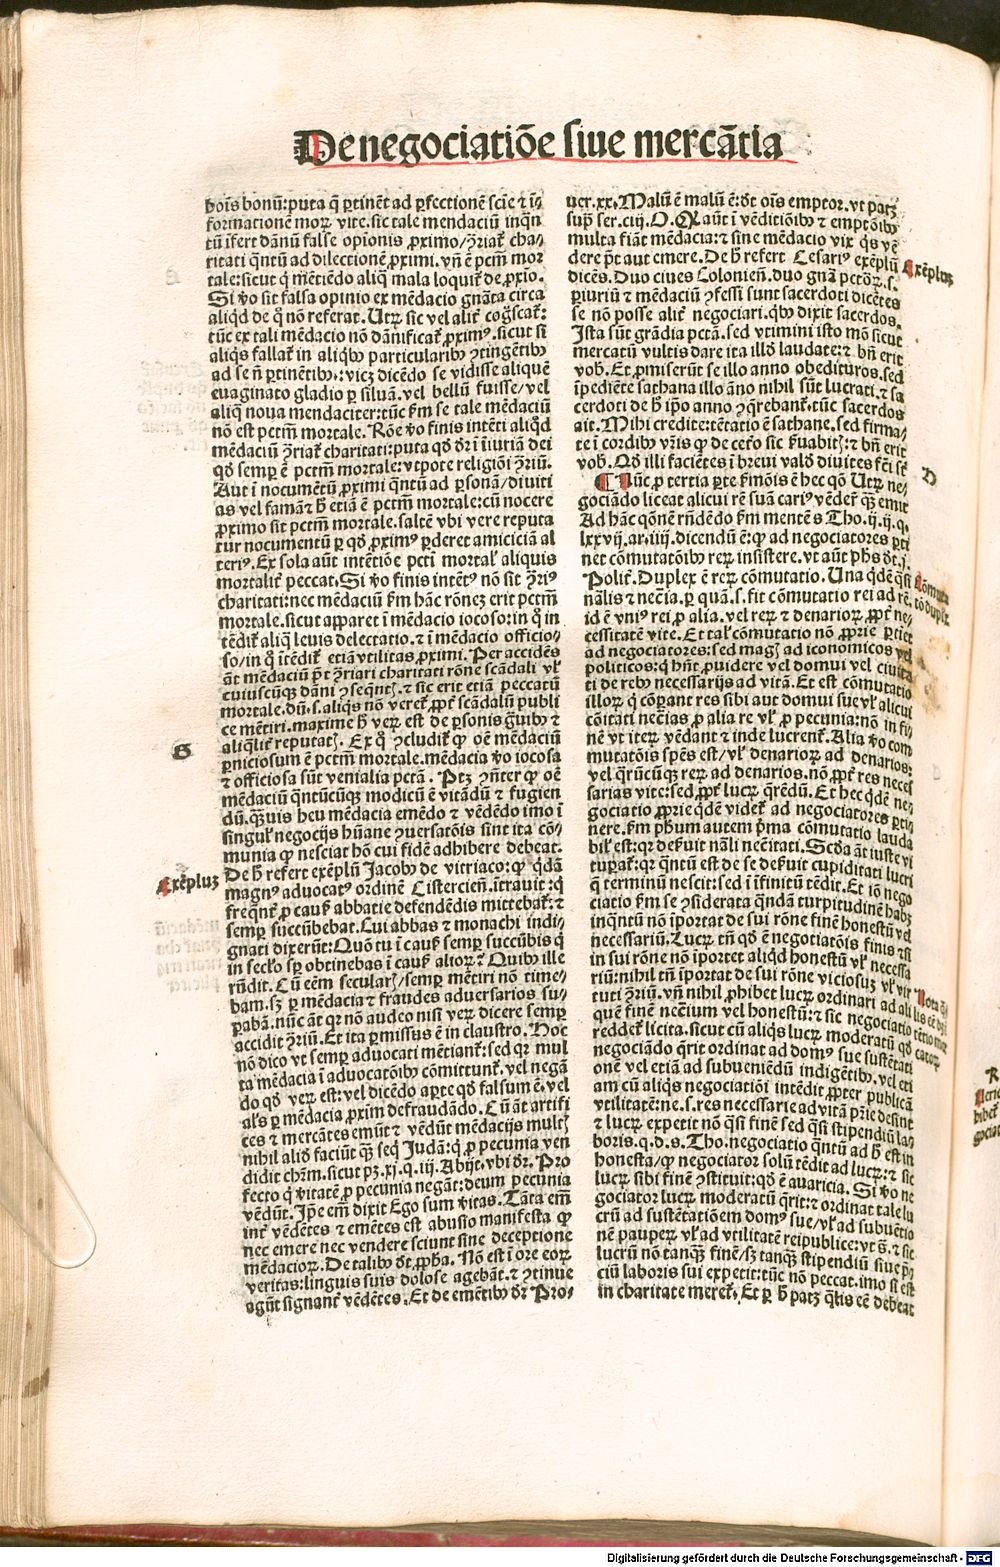 De negociatiōe siue mercātia
bois bonū: puta q̄ ꝑtinēt ad ꝑfectionē sciē ⁊ ī⸗
formationē moꝝ vite. sic tale mendaciū inqn̄
tū īfert dānū false opīonis ꝓximo/ꝯͬriaͭ cha⸗
ritati qn̄tū ad dilectionē ꝓximi. vn̄ ē pctm̄ mor
tale: sicut q̄ mētiēdo aliq̄ mala loquiͭ de ꝓxīo.
Si ꝟo sit falsa opinio ex mēdacio gnāta circa
aliqd̄ de q̄ nō referat. Utꝝ sic vel aliͭ cogscaͭ:
tūc ex tali mēdacio nō dānificaͭ ꝓximꝰ. sicut si
aliqs fallaͭ in aliqbꝰ particularibꝰ ꝯtingētibꝰ
ad se n̄ ꝑtinētibꝰ: vicꝫ dicēdo se vidisse aliquē
euaginato gladio ꝑ siluā. vel bellū fuisse/vel
aliq̄ noua mendaciter: tūc ẜm se tale mēdaciū
nō est pctm̄ mortale. Rōe ꝟo finis intēti aliqd̄
mēdaciū ꝯͬriaͭ charitati: puta qd̄ dͬ ī iniuriā dei
qd̄ semꝑ ē pctm̄ mortale: vtpote religiōi ꝯͬriū.
Aut ī nocumētū ꝓximi qn̄tū ad ꝑsonā/diuiti
as vel famā ⁊ ħ etiā ē pctm̄ mortale: cū nocere
ꝓximo sit pctm̄ mortale. saltē vbi vere reputa
tur nocumentū ꝑ qd̄ ꝓximꝰ ꝑderet amiciciā al
teriꝰ. Ex sola aūt intētiōe pcti mortalͭ aliquis
mortaliͭ peccat. Si ꝟo finis intētꝰ nō sit ꝯͬriꝰ
charitati: nec mēdaciū ẜm hāc rōneꝫ erit pctm̄
mortale. sicut apparet ī mēdacio iocoso: in q̄ in
tēdiͭ aliq̄ leuis delectatio. ⁊ ī mēdacio officio⸗
so/in q̄ ītēdiͭ etiā vtilitas ꝓximi. Per accidēs
āt mēdaciū p̄t ꝯͬriari charitati rōne scādali vͭ
cuiuscūqꝫ dāni ꝯseqn̄tꝭ. ⁊ sic erit etiā peccatū
mortale. dū. s. aliqs nō vereͭ ꝓpͭ scādalū publi
ce mētiri. maxime ħ veꝝ est de ꝑsonis gͣuibꝰ ⁊
aliqliͭ reputatꝭ. Ex q̄ ꝯcludiͭ ꝙ oē mēdaciū
ꝑniciosum ē pctm̄ mortale. mēdacia ꝟo iocosa
⁊ officiosa sūt venialia pctā. Ptꝫ ꝯn̄ter ꝙ oē
mēdaciū qn̄tūcūqꝫ modicū ē vitādū ⁊ fugien
dū. qͣꝫuis heu mēdacia emēdo ⁊ vēdēdo imo ī
singulͭ negocijs hūane ꝯuersatōis sint ita cō⸗
munia ꝙ nesciat hō cui fidē adhibere debeat.
De ħ refert exēplū Jacobꝰ de vitriaco: ꝙ qdā
magnꝰ aduocatꝰ ordinē Cistercieñ. ītrauit: q̄
freqn̄ͭ ꝓ causͭ abbatie defendēdis mittebaͭ: ⁊
semꝑ succūbebat. Cui abbas ⁊ monachi indi⸗
gnati dixerūt: Quō tu ī causͭ semꝑ succūbis q̄
in secͭo sꝑ obtinebas ī causͭ alioꝝ? Quibꝰ ille
rn̄dit. Cū eēm secularꝭ/semꝑ mētiri nō time⸗
bam. sꝫ ꝑ mēdacia ⁊ fraudes aduersarios su⸗
ꝑabā. nūc āt qꝛ nō audeo nisi veꝝ dicere semꝑ
accidit ꝯͬriū. Et ita ꝑmissus ē in claustro. Hoc
nō dico vt semꝑ aduocati mētianͭ: sed qꝛ mul
ta mēdacia ī aduocatōibꝰ cōmittunͭ. vel negā
do qd̄ veꝝ est: vel dicēdo aꝑte qd̄ falsum ē. vel
alͭs ꝑ mēdacia ꝓximū defraudādo. Cū āt artifi
ces ⁊ mercātes emūt ⁊ vēdūt mēdacijs multꝭ
nihil aliō faciūt qͣꝫ seq̄ Judā: q̄ ꝓ pecunia ven
didit chr̄m. sicut pꝫ. xj. q. iij. Abijt. vbi dͬ. Pro
fecto q̄ ꝟitatē ꝓ pecunia negāt: deum pecunia
vēdūt. Jp̄e em̄ dixit Ego sum ꝟitas. Tāta em̄
inͭ vēdētes ⁊ emētes est abusio manifesta ꝙ
nec emere nec vendere sciunt sine deceptione
mēdacioꝝ. De talibꝰ dͭ. ꝓp̄ha. Nō est ī ore eoꝝ
veritas: linguis suis dolose agebāt. ⁊ ꝯtinue
agūt signanͭ vēdētes. Et de emētibꝰ dͬ Pro⸗
S
Exēpluꝫ
uer. xx. Malū ē malū ē: dͭ ois emptor. vt patꝫ
supͣ ser. ciij. O. Q aūt ī vēditiōibꝰ ⁊ emptōibꝰ
multa fiāt mēdacia: ⁊ sine mēdacio vix q̄s vē
dere p̄t aut emere. De ħ refert Cesariꝰ exēplū
dicēs. Duo ciues Colonieñ. duo gnā pctōꝝ. s.
ꝑiuriū ⁊ mēdaciū ꝯfessi sunt sacerdoti dicētes
se nō posse aliͭ negociari. qbꝰ dixit sacerdos.
Ista sūt grādia pctā. sed vtimini isto mō sicut
mercatū vultis dare ita illō laudate: ⁊ bn̄ erit
vob. Et ꝓmiserūt se illo anno obedituros. sed
īpediēte sathana illo āno nihil sūt lucrati. ⁊ sa
cerdoti de ħ ip̄o anno ꝯq̄rebanͭ. tūc sacerdos
ait. Mihi credite: tētatio ē sathane. sed firma⸗
te ī cordibꝰ vr̄is ꝙ de ceto sic ẜuabitꝭ: ⁊ bn̄ erit
vob. Qd̄ illi faciētes ī breui valde diuites fcī st̄
¶ Tūc ꝓ tertia ꝑte ẜmōis ē hec qō Utꝝ ne⸗
gociādo liceat alicui rē suā cariꝰ vēdeͬ qͣꝫ emit
Ad hāc qōnē rn̄dēdo ẜm mentē s Tho. ij. ij. q.
lxxvij. ar. iiij. dicendū ē: ꝙ ad negociatores ꝑti
net cōmutatōibꝰ reꝝ insistere. vt aūt phs dͭ. j.
Politͭ. Duplex ē reꝝ cōmutatio. Una qdē qͣsi
nālis ⁊ neccͣia. ꝑ quā. s. fit cōmutatio rei ad rē.
id ē vniꝰ rei ꝓ alia. vel reꝝ ⁊ denarioꝝ ꝓpͭ ne⸗
cessitatē vite. Et talͭ cōmutatio nō ꝓprie ꝑtiet
ad negociatores: sed magꝭ ad iconomicos vel
politicos: q̄ hn̄t ꝓuidere vel domui vel ciuita
ti de rebꝰ necessarijs ad vitā. Et est cōmutatio
illoꝝ q̄ cōꝑant res sibi aut domui sue vͭ alicui
cōitati neccͣias ꝓ alia re vͭ ꝓ pecunia: nō in fi⸗
nē vt iteꝝ vēdant ⁊ inde lucrenͭ. Alia ꝟo com
mutatōis spēs est/vͭ denarioꝝ ad denarios:
vel qͬūcūqꝫ reꝝ ad denarios. nō ꝓpͭ res neces
sarias vite: sed ꝓpͭ lucꝝ q̄rēdū. Et hec qdē ne⸗
gociatio ꝓprie qdē videͭ ad negociatores ꝑti⸗
nere. ẜm phum autem pͥma cōmutatio lauda
bilͭ est: qꝛ deẜuit nāli necc̄itati. Scd̄a āt iuste vi
tuꝑaͭ: qꝛ qn̄tū est de se deẜuit cupiditati lucri
q̄ terminū nescit: sed ī īfinitū tēdit. Et iō nego
ciatio ẜm se ꝯsiderata qn̄dā turpitudinē habꝫ
inqn̄tū nō īportat de sui rōne finē honestū vel
necessariū. Lucꝝ tn̄ qd̄ ē negociatōis finis etsi
in sui rōne nō īportet aliqd̄ honestū vͭ necessa
riū: nihil tn̄ īportat de sui rōne viciosuꝫ vͭ vir
tuti ꝯͬriū. vn̄ nihil ꝓhibet lucꝝ ordinari ad ali
quē finē neccīum vel honestū: ⁊ sic negociatio
reddeͭ licita. sicut cū aliqs lucꝝ moderatū qd̄
negociādo q̄rit ordinat ad domꝰ sue sustētati
onē vel etiā ad subueniēdū indigētibꝰ. vel eti
am cū aliqs negociatiōi intēdit ꝓpter publicā
vtilitatē: ne. s. res necessarie ad vitā pr̄ie desint
⁊ lucꝝ expetit nō qͣsi finē sed qͣsi stipendiū la⸗
boris. q. d. s. Tho. negociatio qn̄tū ad ħ est in
honesta/ꝙ negociator solū tēdit ad lucꝝ: ⁊ sic
lucꝝ sibi finē ꝯstituit: qd̄ ē auaricia. Si ꝟo ne
gociator lucꝝ moderatū q̄rit: ⁊ ordinat tale lu
crū ad sustētatiōem domꝰ sue/vͭ ad subuētio
nē pauperꝝ vͭ ad vtilitatē reipublice: vt s̄. ⁊ sic
lucrū nō tanqͣꝫ finē/sꝫ tanqͣꝫ stipendiū siue p̄
ciū laboris sui expetit: tūc nō peccat. imo si est
in charitate mereͭ. Et ꝑ ħ patꝫ q̄lis eē debeat
Exēpluꝫ
D
Cōmuta
tō dupleꝫ
Nota q̄